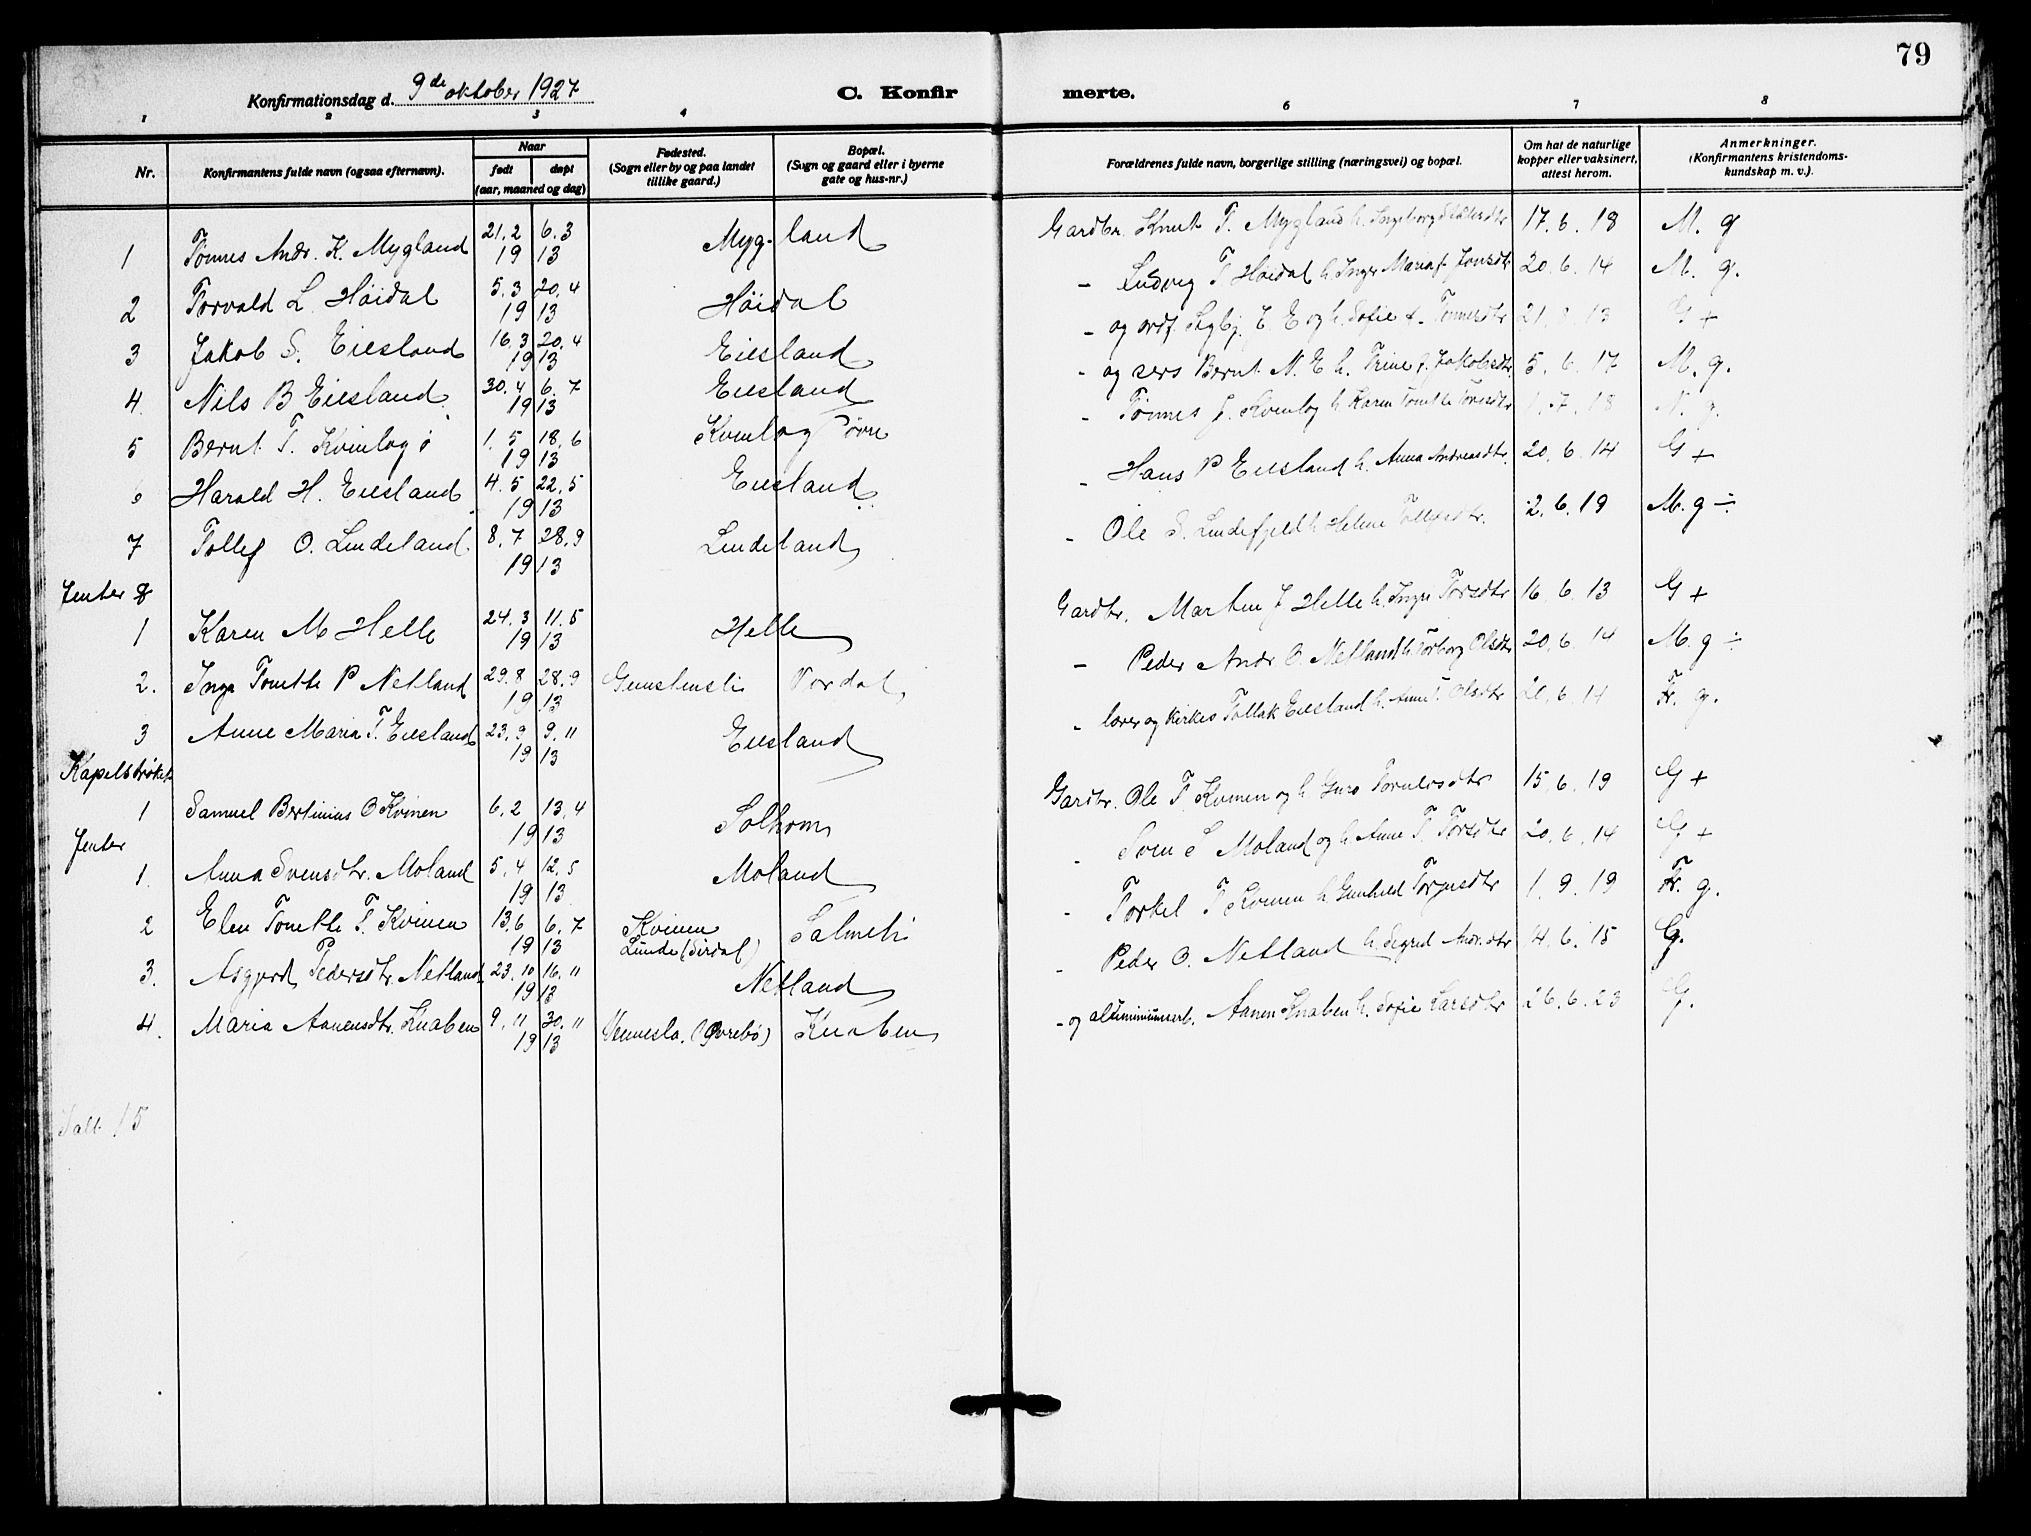 79
Konfirmationsdag d. 9de oktober 1927
C. Konfirmerte.
1 2 3 4 6 7 8
Nr.
Konfirmantens fulde navn (ogsaa efternavn).
Naar
født døpt
(aar, maaned og dag)
Fødested.
(Sogn eller by og paa landet
tillike gaard.)
Bopæl.
(Sogn og gaard eller i byerne
gate og hus-nr.)
Forældrenes fulde navn, borgerlige stilling (næringsvei) og bopæl.
Om hat de naturlige
kopper eller vaksinert,
attest herom.
Anmerkninger.
(Konfirmantens kristendoms-
kundskap m. v.).
1 Tønnes Andr. K. Mygland 21.2 6.3 1913 Mygland Gardbr. Knut T. Mygland h. Ingeborg 17.6.18 M. g
2 Torvald L. Höidal 5.3 20.4 1913 Höidal - Ludvig T Höidal h. Inger Maria f. Jonsdtr 20.6.14 M. g.
3 Jakob S. Eiesland 16.3 20.4 1913 Eiesland - og ordf. Sigbj. E og h. Sofie f. Tønnesdtr 21. 13 G +
4. Nils B Eiesland 30.4 6.7 1913 Eiesland - og sers Bernt N. E h. Trine f. Jakobsdtr. 5.6.17 M. g.
5 Bernt T. Kvinlog ö 1.5 18.6 1913 Kvinlog övre - Tönnes J. Kvinlog h Karen Tonette 1.7.18
6 Harald H. Eiesland 4.5 22.5 1913 Eiesland - Hans P Eiesland h. Anna Andreasdtr. 20.6.14 G +
7 Tollef O. Lindeland 8.7 28.9 1913 Lindeland - Ole S. Lindefjeld h Helene 2.6.19 M. g ÷
Jenter
1 Karen M Helle 24.3 11.5 1913 Helle Gardbr. Marten J Helle h. Inger Torsdtr 16.6.13 G +
2. Inga Tonette P Netland 29.8 28.9 1913 Vordal - Peder Andr O. Netland h Torborg Olsdtr 20.6.14 M. g ÷
3 Anne Maria T. Eiesland 23.9 9.11 1913 Eiesland - lærer og kirkes Tollak Eiesland h. Anne T. Olsdtr .6.14 Tr. g.
Kapelströket
1 Samuel Bertinius O Kvinen 6.2 13.4 1913 Solhom Gardbr. Ole T Kvinen og h Guro 15.6.19 G +
Jenter
1. Anna Svensdtr. Moland 5.4 12.5 1913 Moland - Sven S Moland og h Anne T. Torsdtr 20.6.14 G +
2 Elen Tonette T. Kvinen 13.6 6.7 1913 Kvinen Salmeli - Torkel T Kvinen h Gunhild 1.9.19 Tr. g.
3. Asgjerd Pedersdtr. Netland 23.10 16.11 1913 Lunde (Sirdal) Netland - Peder O. Netland h. Sigrid Andr.dtr 4.6.15 G.
4. Maria Aanensdtr. Knaben 9.11 30.11 1913 Vennesla. (Øvrebö) Knaben - og aluminiumarb. Aanen Knaben h. Sofie Larsdtr 26.6.23 G.
Ialt 15